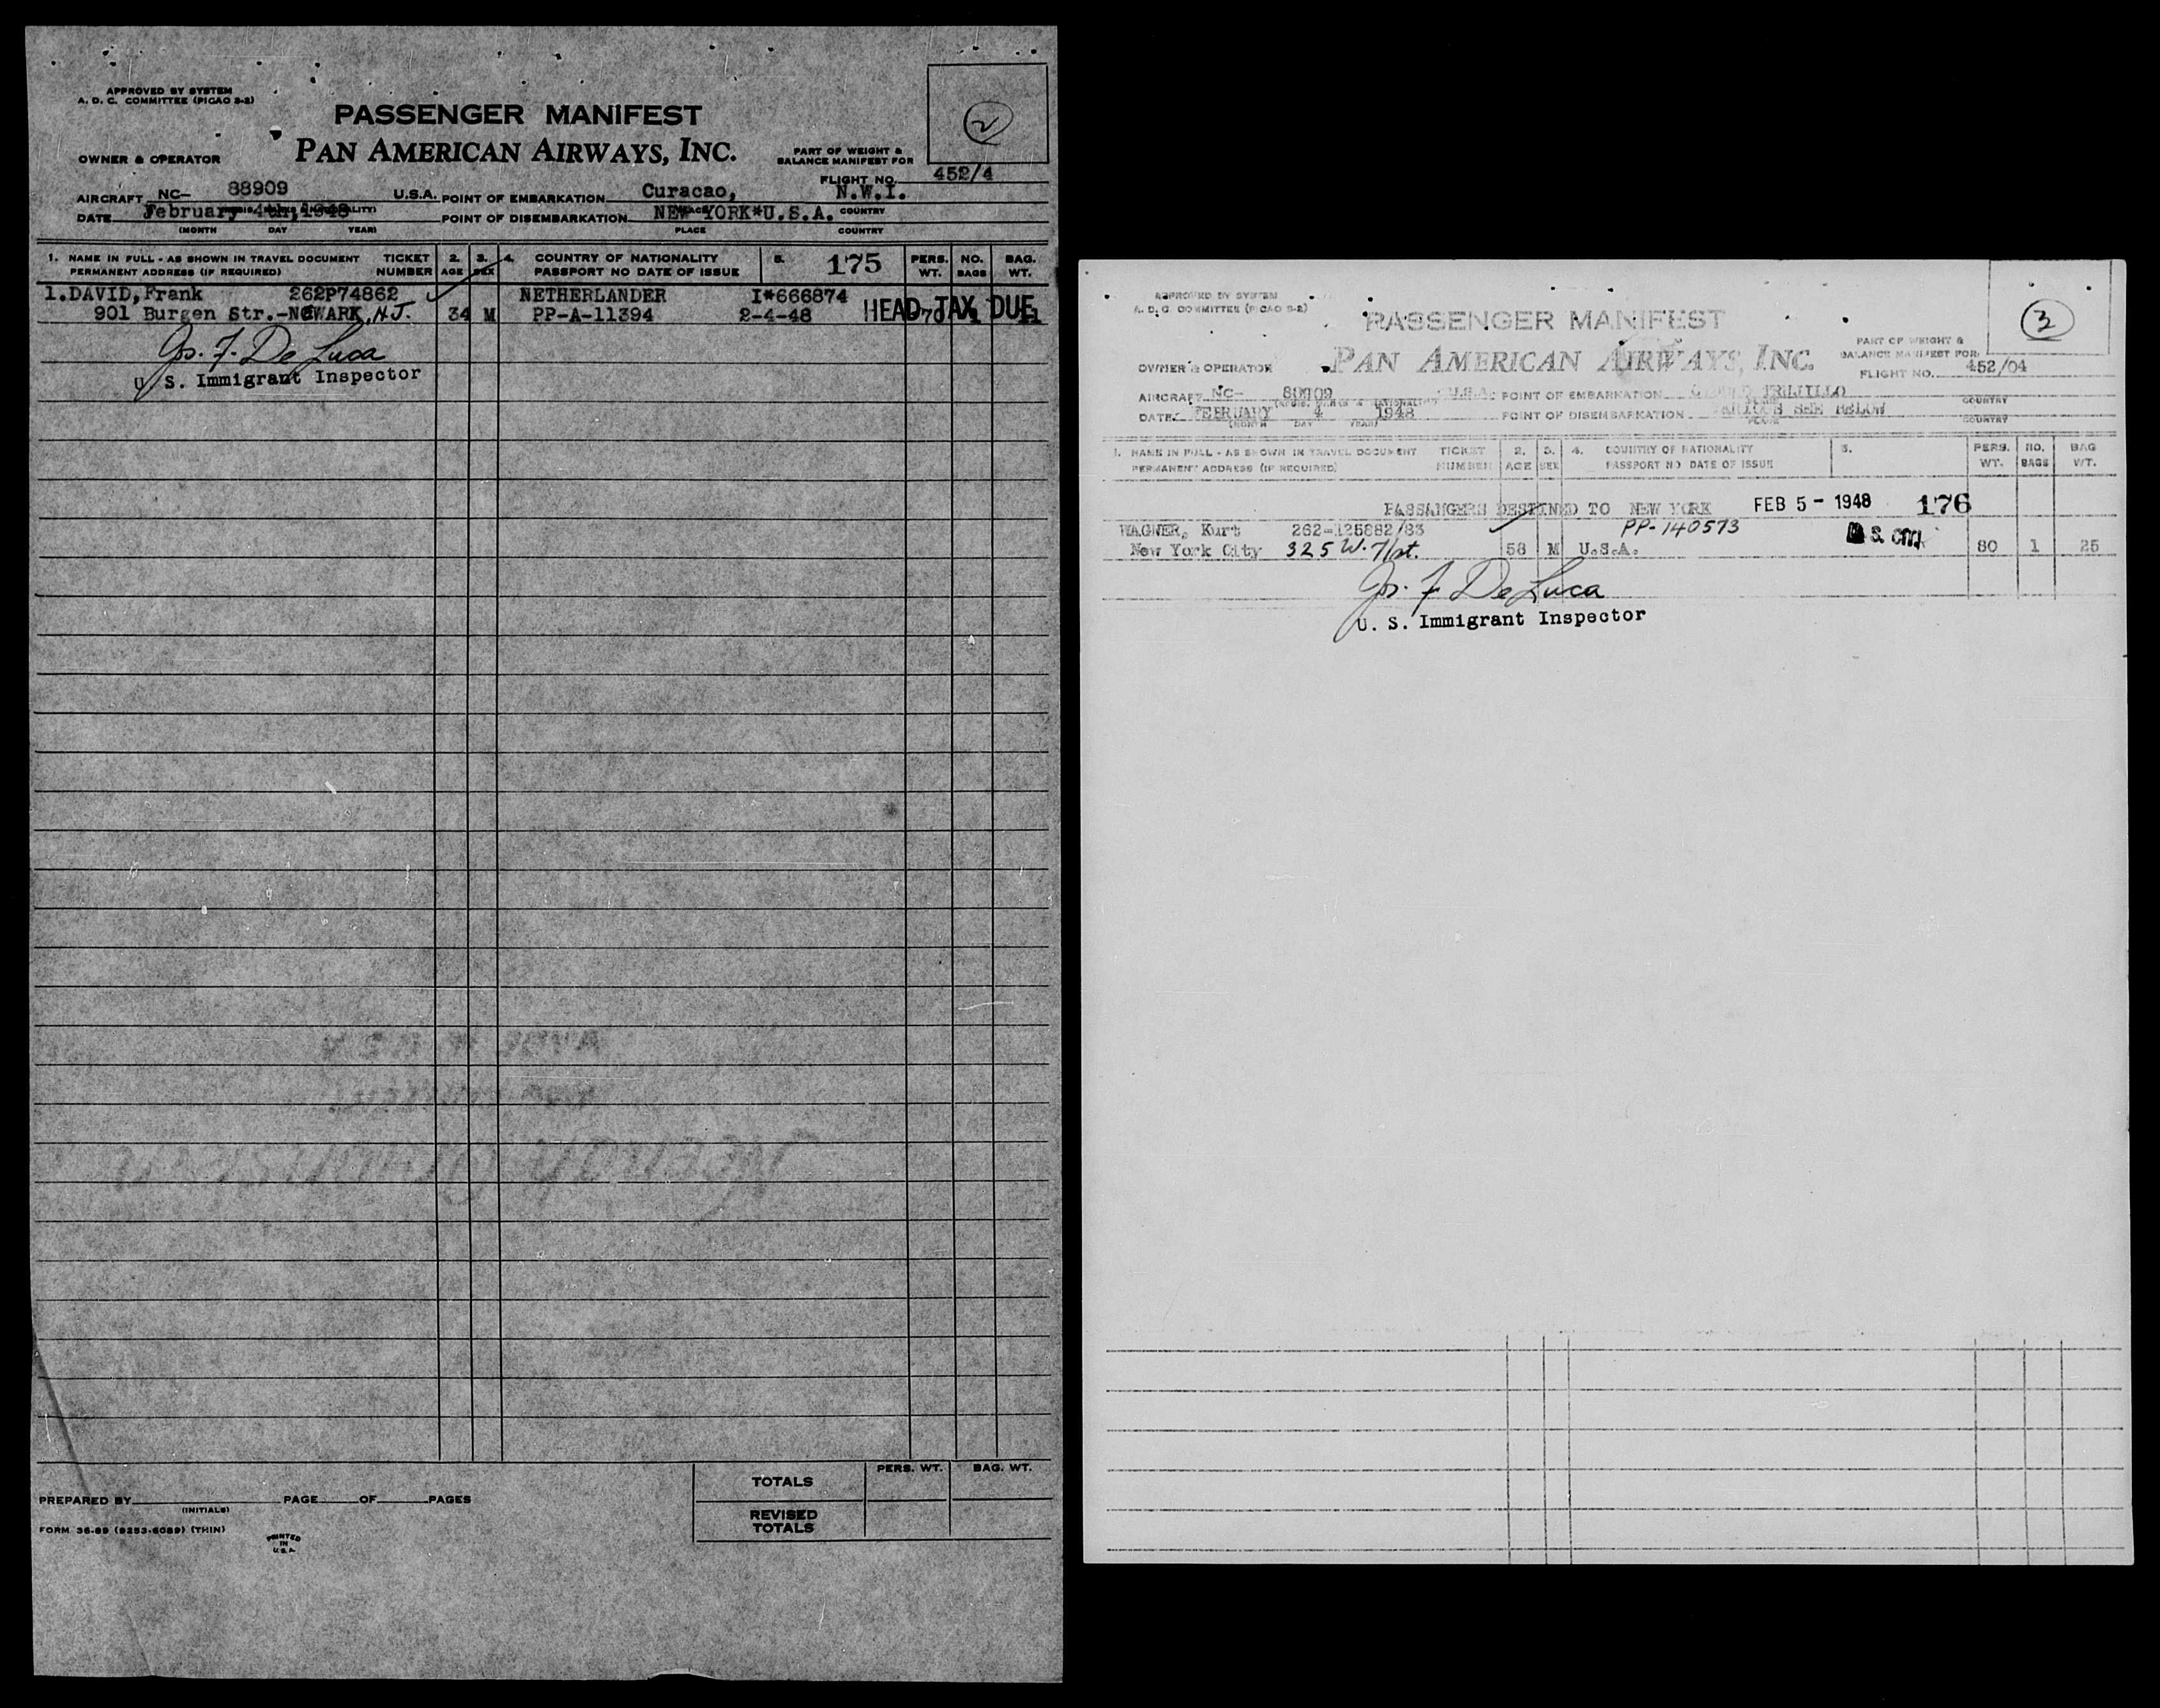 APPROVED BY SYSTEM
A. D. C. COMMITTEE (PICAO S-2)
2
PASSENGER MANIFEST
OWNER & OPERATOR PAN AMERICAN AIRWAYS, INC.
PART OF WEIGHT &
BALANCE MANIFEST FOR
FLIGHT NO. 452/4
AIRCRAFT NC- 88909 U.S.A. POINT OF EMBARKATION Curacao, N.W.I.
DATE February 4th, 1948 POINT OF DISEMBARKATION NEW YORK*U.S.A. COUNTRY
(MONTH DAY YEAR) PLACE COUNTRY
1. NAME IN FULL - AS SHOWN IN TRAVEL DOCUMENT TICKET 2. 3. 4. COUNTRY OF NATIONALITY 5. 175 PERS. NO. BAG.
PERMANENT ADDRESS (IF REQUIRED) NUMBER AGE SEX PASSPORT NO DATE OF ISSUE WT. BAGS WT.
1.DAVID, Frank 262P74862 NETHERLANDER I*666874
901 Burgen Str.-NEWARK, N.J. 34 M PP-A-11394 2-4-48 HEAD TAX DUE
Jos. F. De Luca
U. S. Immigrant Inspector
PERS. WT. BAG. WT.
TOTALS
REVISED
TOTALS
PREPARED BY PAGE OF PAGES
(INITIALS)
FORM 36-89 (9253-6089) (THIN)
PRINTED
IN
U.S.A.
APPROVED BY SYSTEM
A. D. C. COMMITTEE (PICAO S-2)
3
PASSENGER MANIFEST
OWNER & OPERATOR PAN AMERICAN AIRWAYS, INC.
PART OF WEIGHT &
BALANCE MANIFEST FOR
FLIGHT NO. 452/04
AIRCRAFT NC- 88909 U.S.A. POINT OF EMBARKATION CIUDAD TRUJILLO COUNTRY
DATE FEBRUARY 4 1948 POINT OF DISEMBARKATION VARIOUS SEE BELOW
(MONTH DAY YEAR) PLACE COUNTRY
1. NAME IN FULL - AS SHOWN IN TRAVEL DOCUMENT TICKET 2. 3. 4. COUNTRY OF NATIONALITY 5. PERS. NO. BAG
PERMANENT ADDRESS (IF REQUIRED) NUMBER AGE SEX PASSPORT NO DATE OF ISSUE WT. BAGS WT.
PASSANGERS DESTINED TO NEW YORK FEB 5 - 1948 176
WAGNER, Kurt 262-125882/83 PP-140573
New York City 325 W. 71st. 58 M U.S.A. 80 1 25
Jos. F. De Luca
U. S. Immigrant Inspector